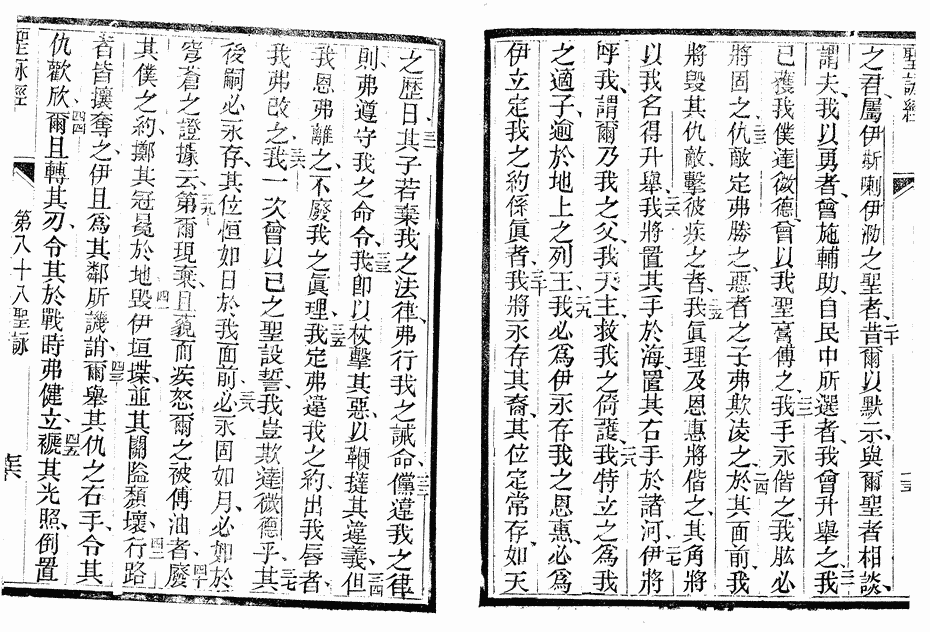 聖詠經
之君、屬伊斯喇伊泐之聖者、二十昔爾以默示與爾聖者相談、
謂夫我以勇者、曾施輔助、自民中所選者、我曾升舉之、二一我
已獲我僕達微德、曾以我聖膏傅之、二二我手永偕之、我肱必
將固之、二三仇敵定弗勝之、惡者之子弗欺凌之、二四於其面前、我
將毀其仇敵、擊彼疾之者、二五我眞理及恩惠將偕之、其角將
以我名得升舉、二六我將置其手於海、置其右手於諸河、二七伊將
呼我、謂爾乃我之父、我天主、救我之倚護、二八我特立之爲我
之適子、逾於地上之列王、二九我必爲伊永存我之恩惠、必爲
伊立定我之約、係眞者、三十我將永存其裔、其位定常存、如天
之歷日、三一其子若棄我之法律、弗行我之誡命、三二儻違我之律
則、弗遵守我之命令、三三我即以杖擊其惡、以鞭撻其違義、三四但
我恩弗離之、不廢我之眞理、三五我定弗違我之約、出我唇者、
我弗改之、三六我一次曾以己之聖設誓、我豈欺達微德乎、三七其
後嗣必永存、其位恒如日於我面前、三八必永固如月、必如於
穹蒼之證據云、三九第爾現棄且藐而疾怒爾之被傅油者、四十廢
其僕之約、擲其冠冕於地、四一毀伊垣堞、並其關隘頽壞、四二行路
者皆攘奪之、伊且爲其鄰所譏誚、四三爾舉其仇之右手、令其
仇歡欣、四四爾且轉其刃、令其於戰時弗健立、四五褫其光照、倒置
聖詠經 第八十八聖詠